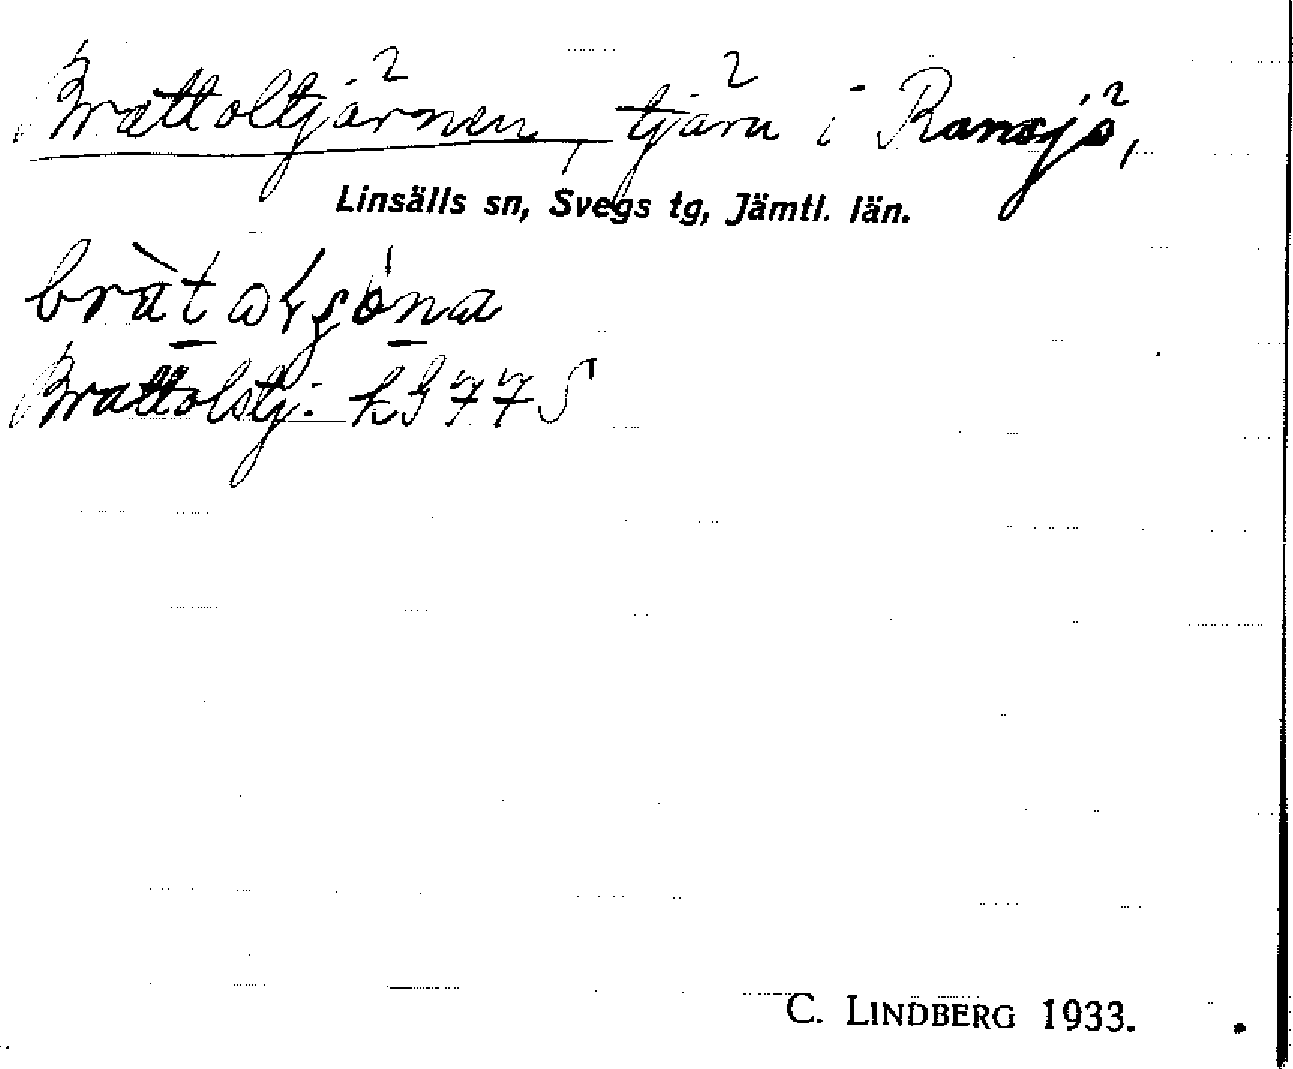 Brattoltjärnen, tjärn i Ransjö,
Linsälls sn, Svegs tg, Jämtl. län.
Brattolstj.
C. LINDBERG 1933.